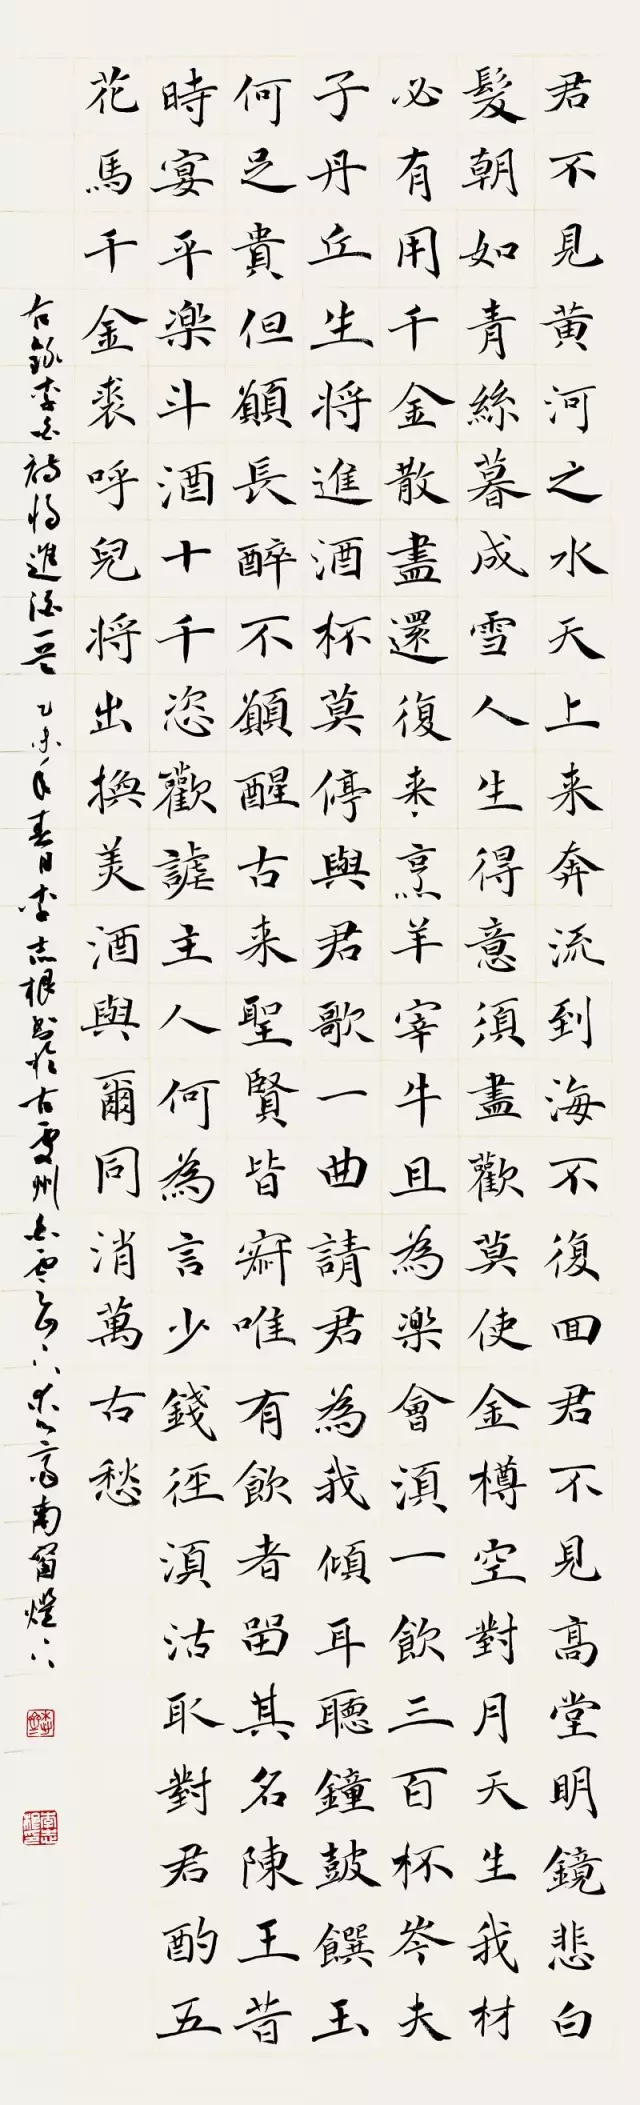 君不見黄河之水天上来奔流到海不復回君不見高堂明鏡悲白
髮朝如青絲暮成雪人生得意須盡歡莫使金樽空對月天生我材
必有用千金散盡還復来烹羊宰牛且為楽會湏一飲三百杯岑夫
子丹丘生将進酒杯莫停與君歌一曲請君為我傾耳聽鐘鼓饌玉
何足貴但願長醉不願醒古来聖賢皆寂唯有飲者留其名陳王昔
時宴平楽斗酒十千恣歡謔主人何為言少錢徑湏沽取對君酌五
花馬千金裘呼兒将出換美酒與爾同消萬古愁
右錄李白詩将進酒一首 乙未年春月李志根書於古虔州 南窗燈下